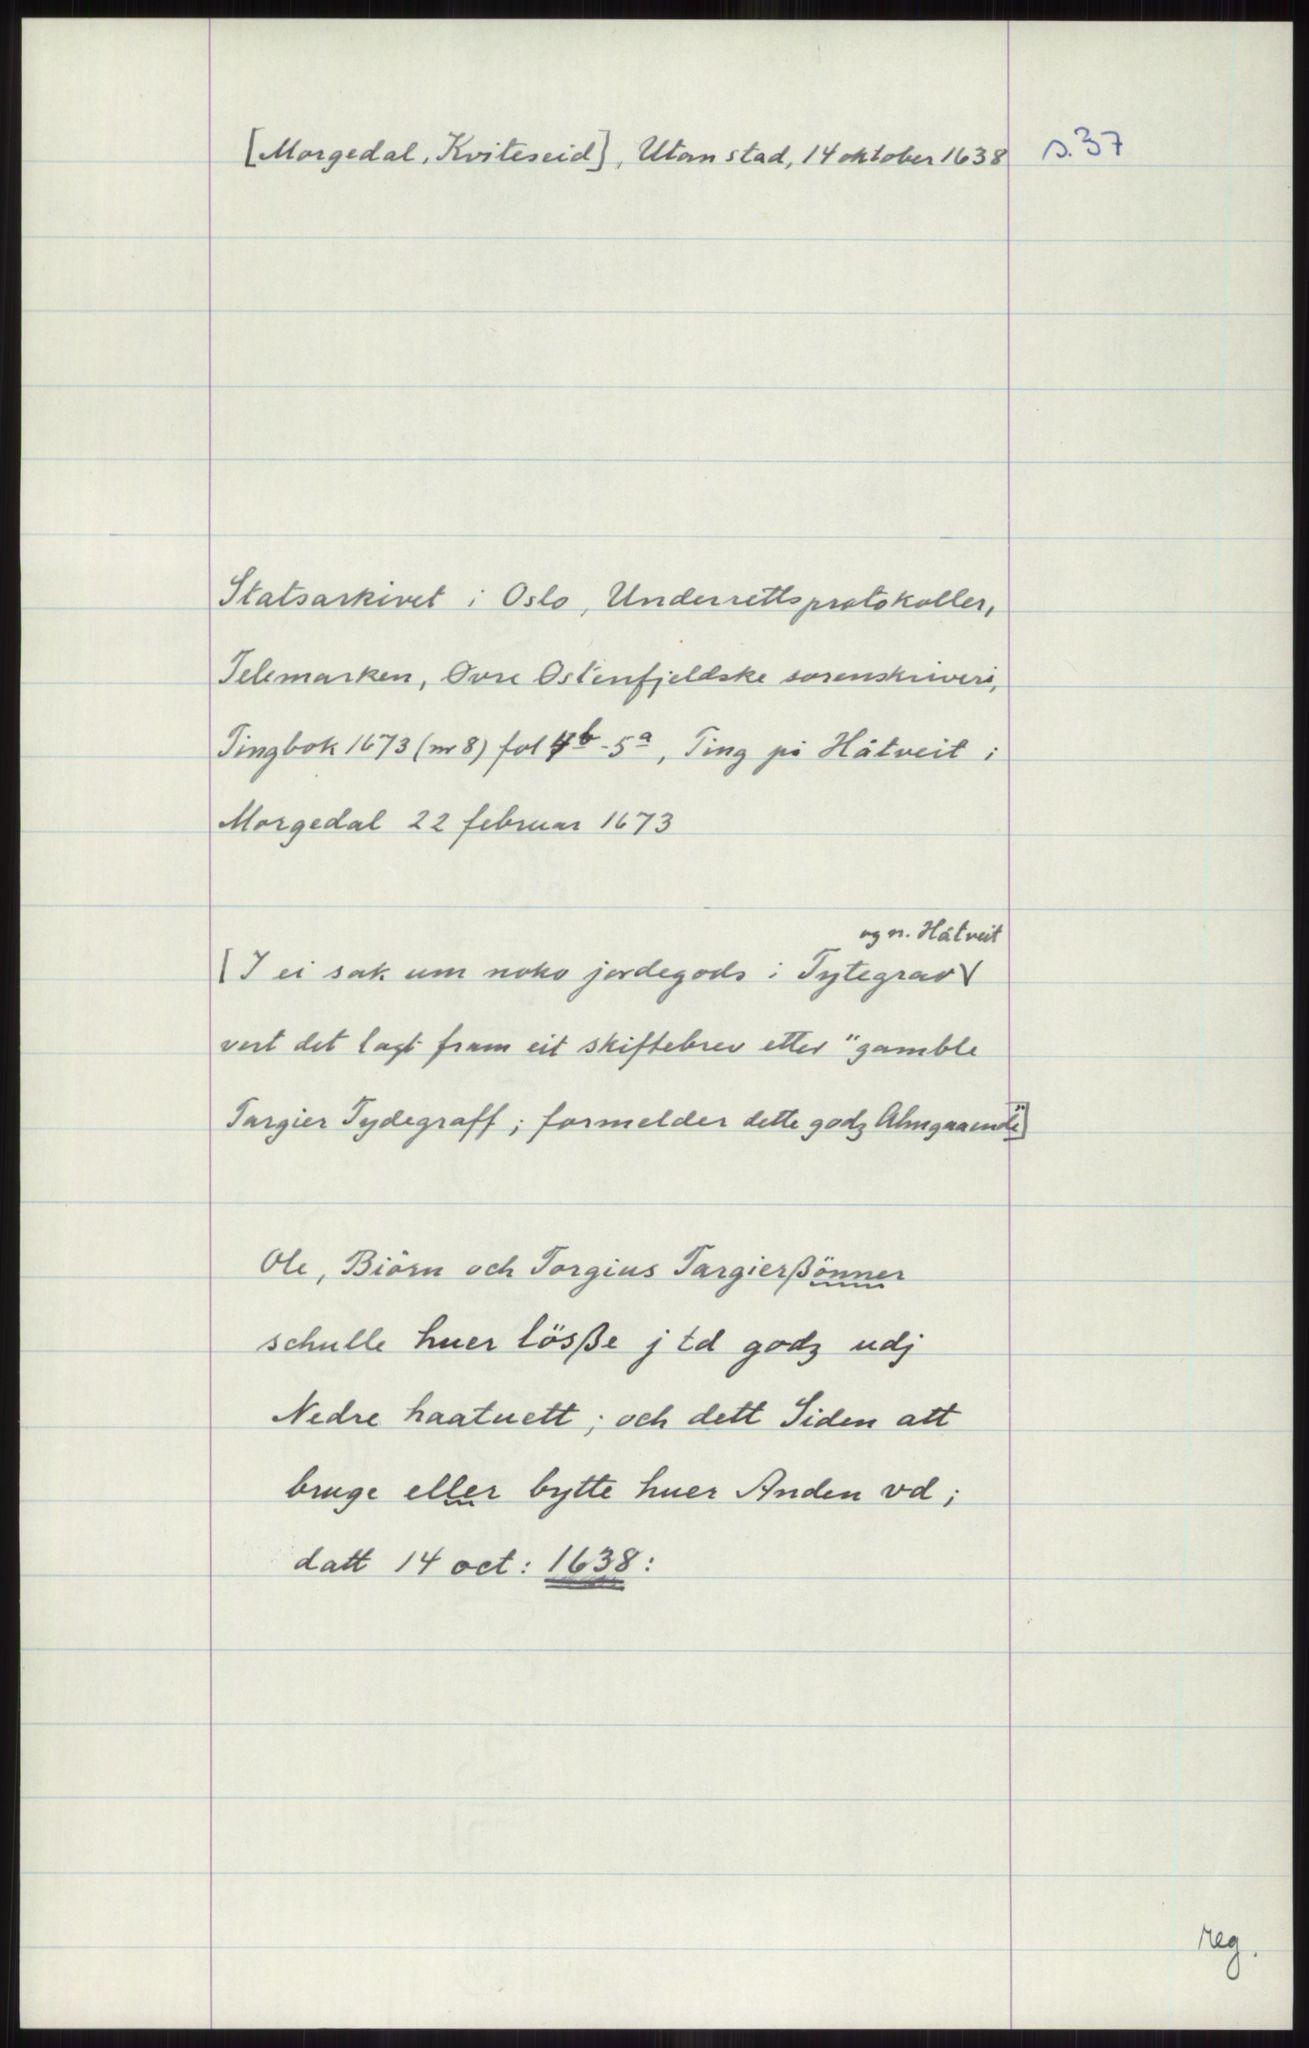 [Morgedal, Kviteseid], Utan stad, 14 oktober 1638
s. 37
Statsarkivet i Oslo, Underrettsprotokoller,
Telemarken, Øvre Østenfjeldske sorenskriveri,
Tingbok 1673 (nr 8) fol 4b-5a, Ting på Håtveit i
Morgedal 22 februar 1673
og n. Håtveit
[I ei sak um noko jordegods i Tytegrav V
vert det lagt fram eit skiftebrev etter "gamble
Targier Tydegraff; formelder dette godz Almgaaende"]
Ole, Biörn och Torgius Targierßönner
schulle huer lösße j td godz udj
Nedre haatuett; och dett Siden att
bruge eller bytte huer Anden vd;
datt 14 oct: 1638:
reg.